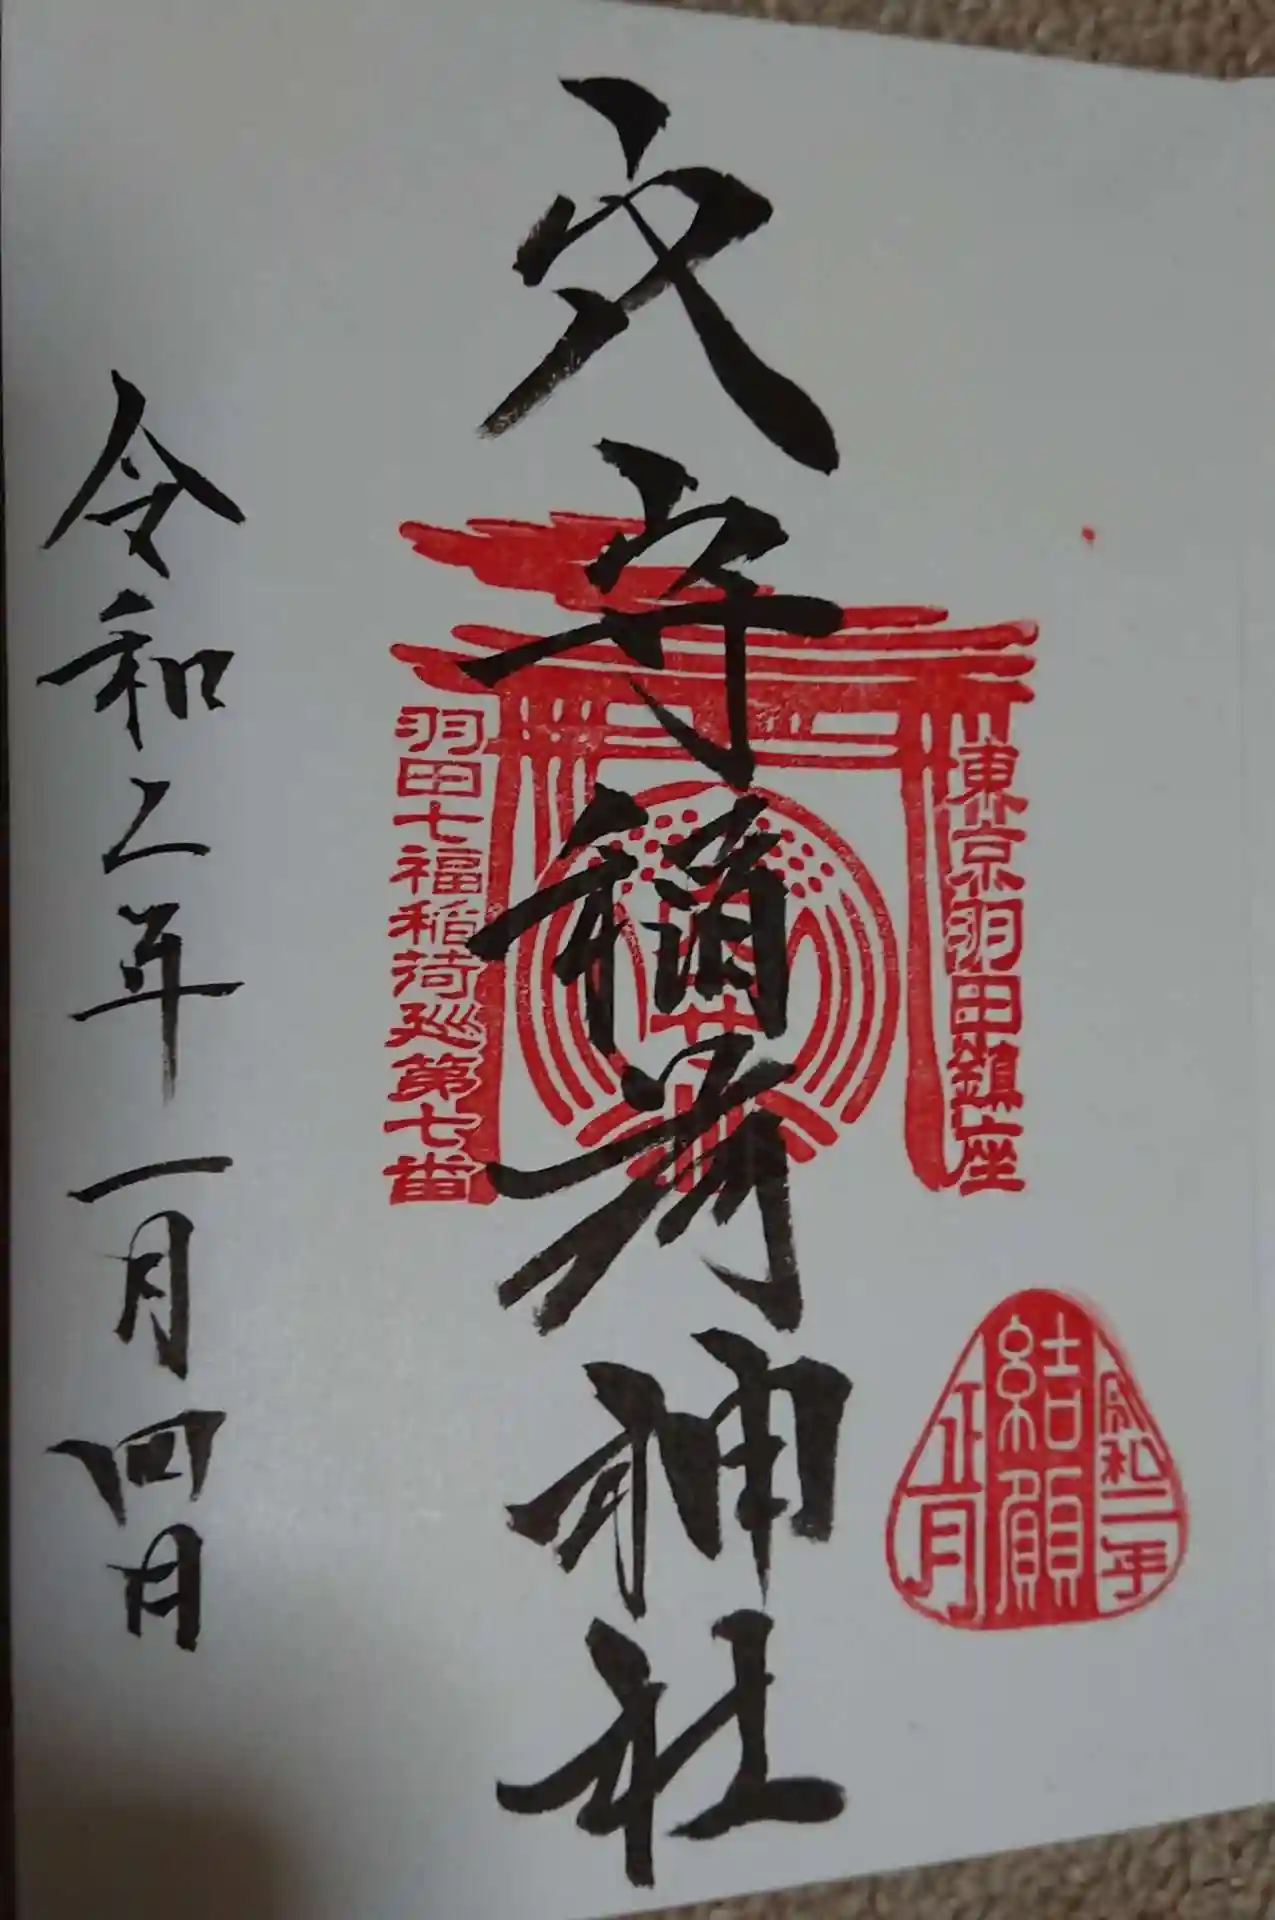 東京羽田鎮座
令和二年
結願
正月
穴守稲荷神社
羽田七福稲荷巡第七番
令和二年一月四日